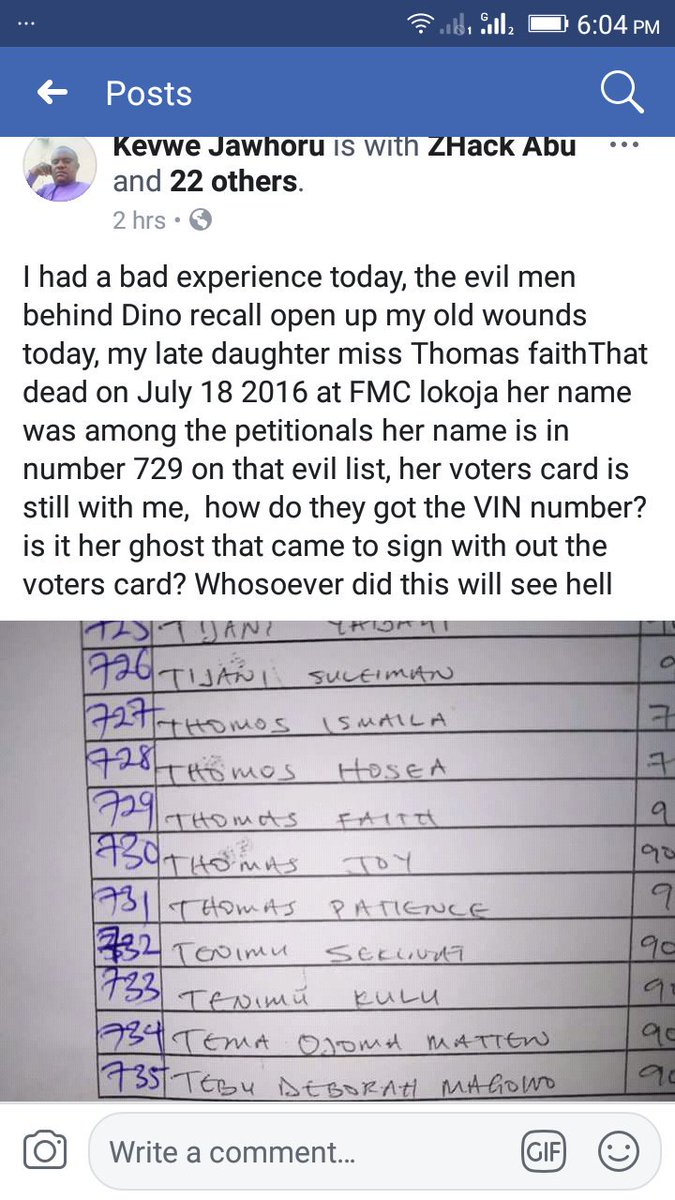 ... G 1 2 6:04 PM
Posts
Kevwe Jawhoru is with ZHack Abu
and 22 others.
2 hrs •
I had a bad experience today, the evil men
behind Dino recall open up my old wounds
today, my late daughter miss Thomas faithThat
dead on July 18 2016 at FMC lokoja her name
was among the petitionals her name is in
number 729 on that evil list, her voters card is
still with me, how do they got the VIN number?
is it her ghost that came to sign with out the
voters card? Whosoever did this will see hell
725 TIJANI
726 TIJANI SULEIMAN
727 THOMOS ISMAILA 7
728 THOMOS HOSEA 7
729 THOMAS FAITH 9
730 THOMAS JOY 90
731 THOMAS PATIENCE 9
732 TENIMU 90
733 TENIMU KULU 9
734 TEMA OJOMA MATTEW 90
735 TEBU DEBORAH MAGOWO 90
Write a comment...
GIF